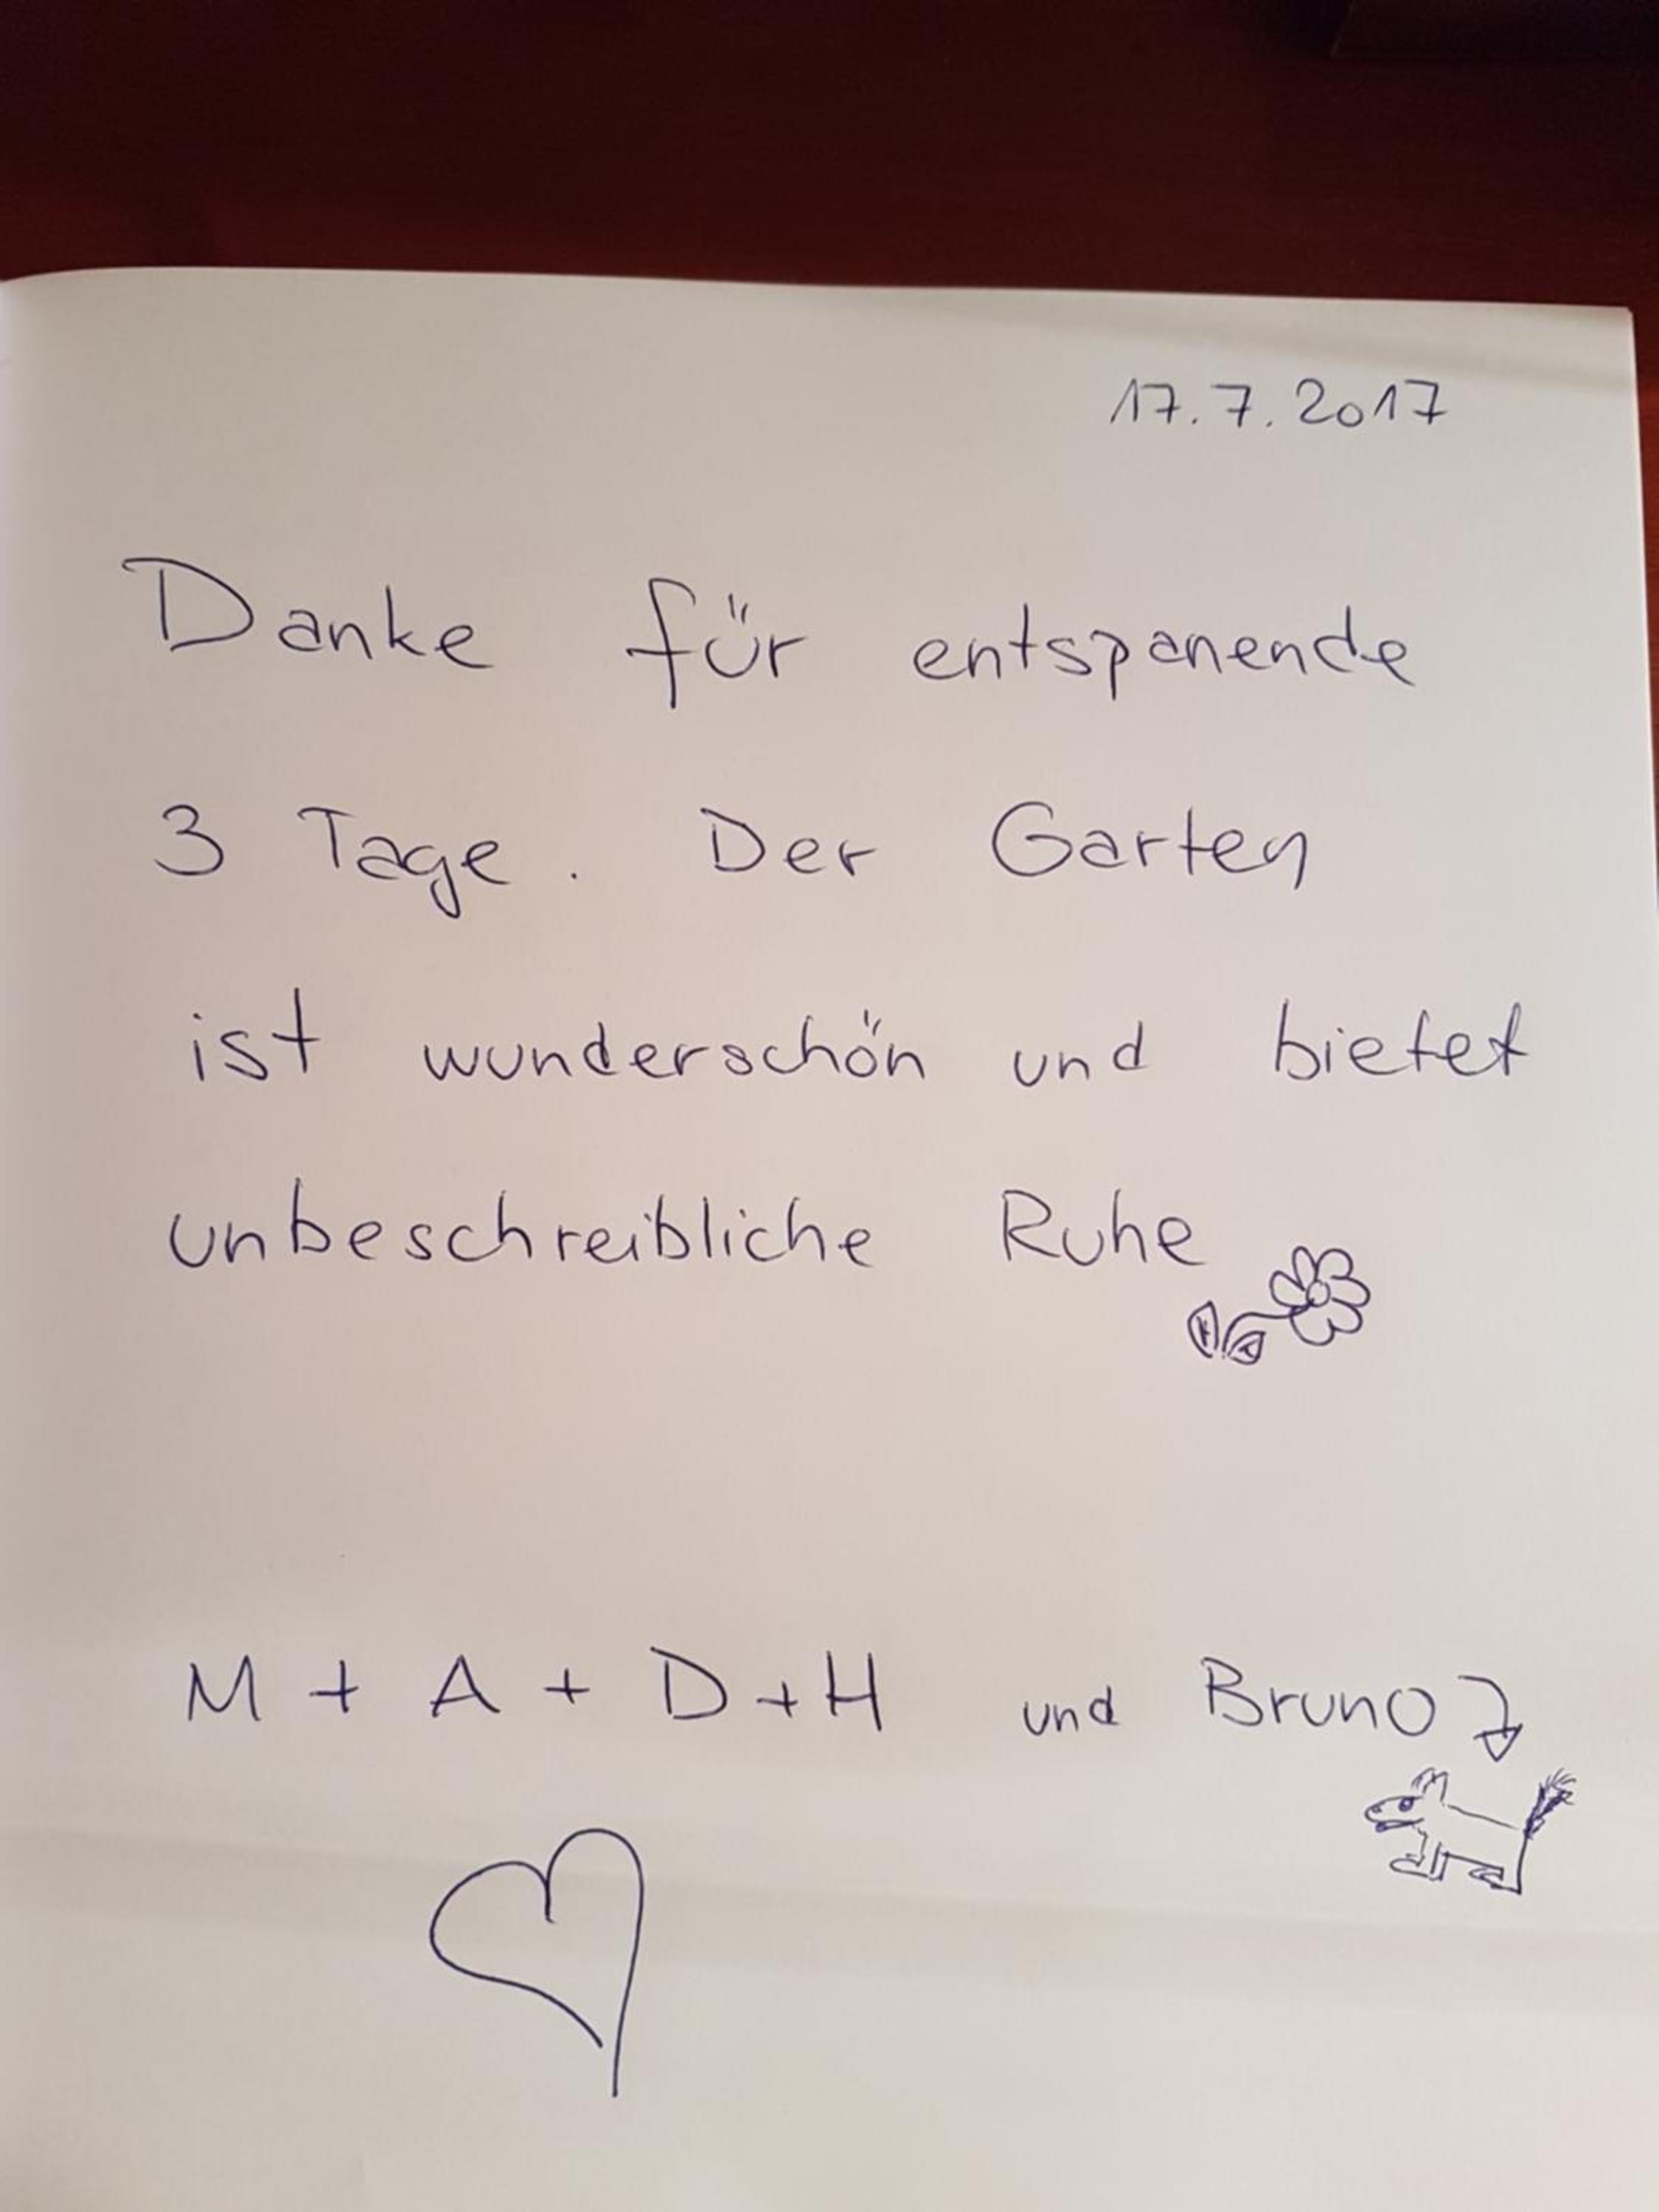 17.7.2017
Danke für entspanende
3 Tage. Der Garten
ist wunderschön und bietet
unbeschreibliche Ruhe
M + A + D + H und Bruno